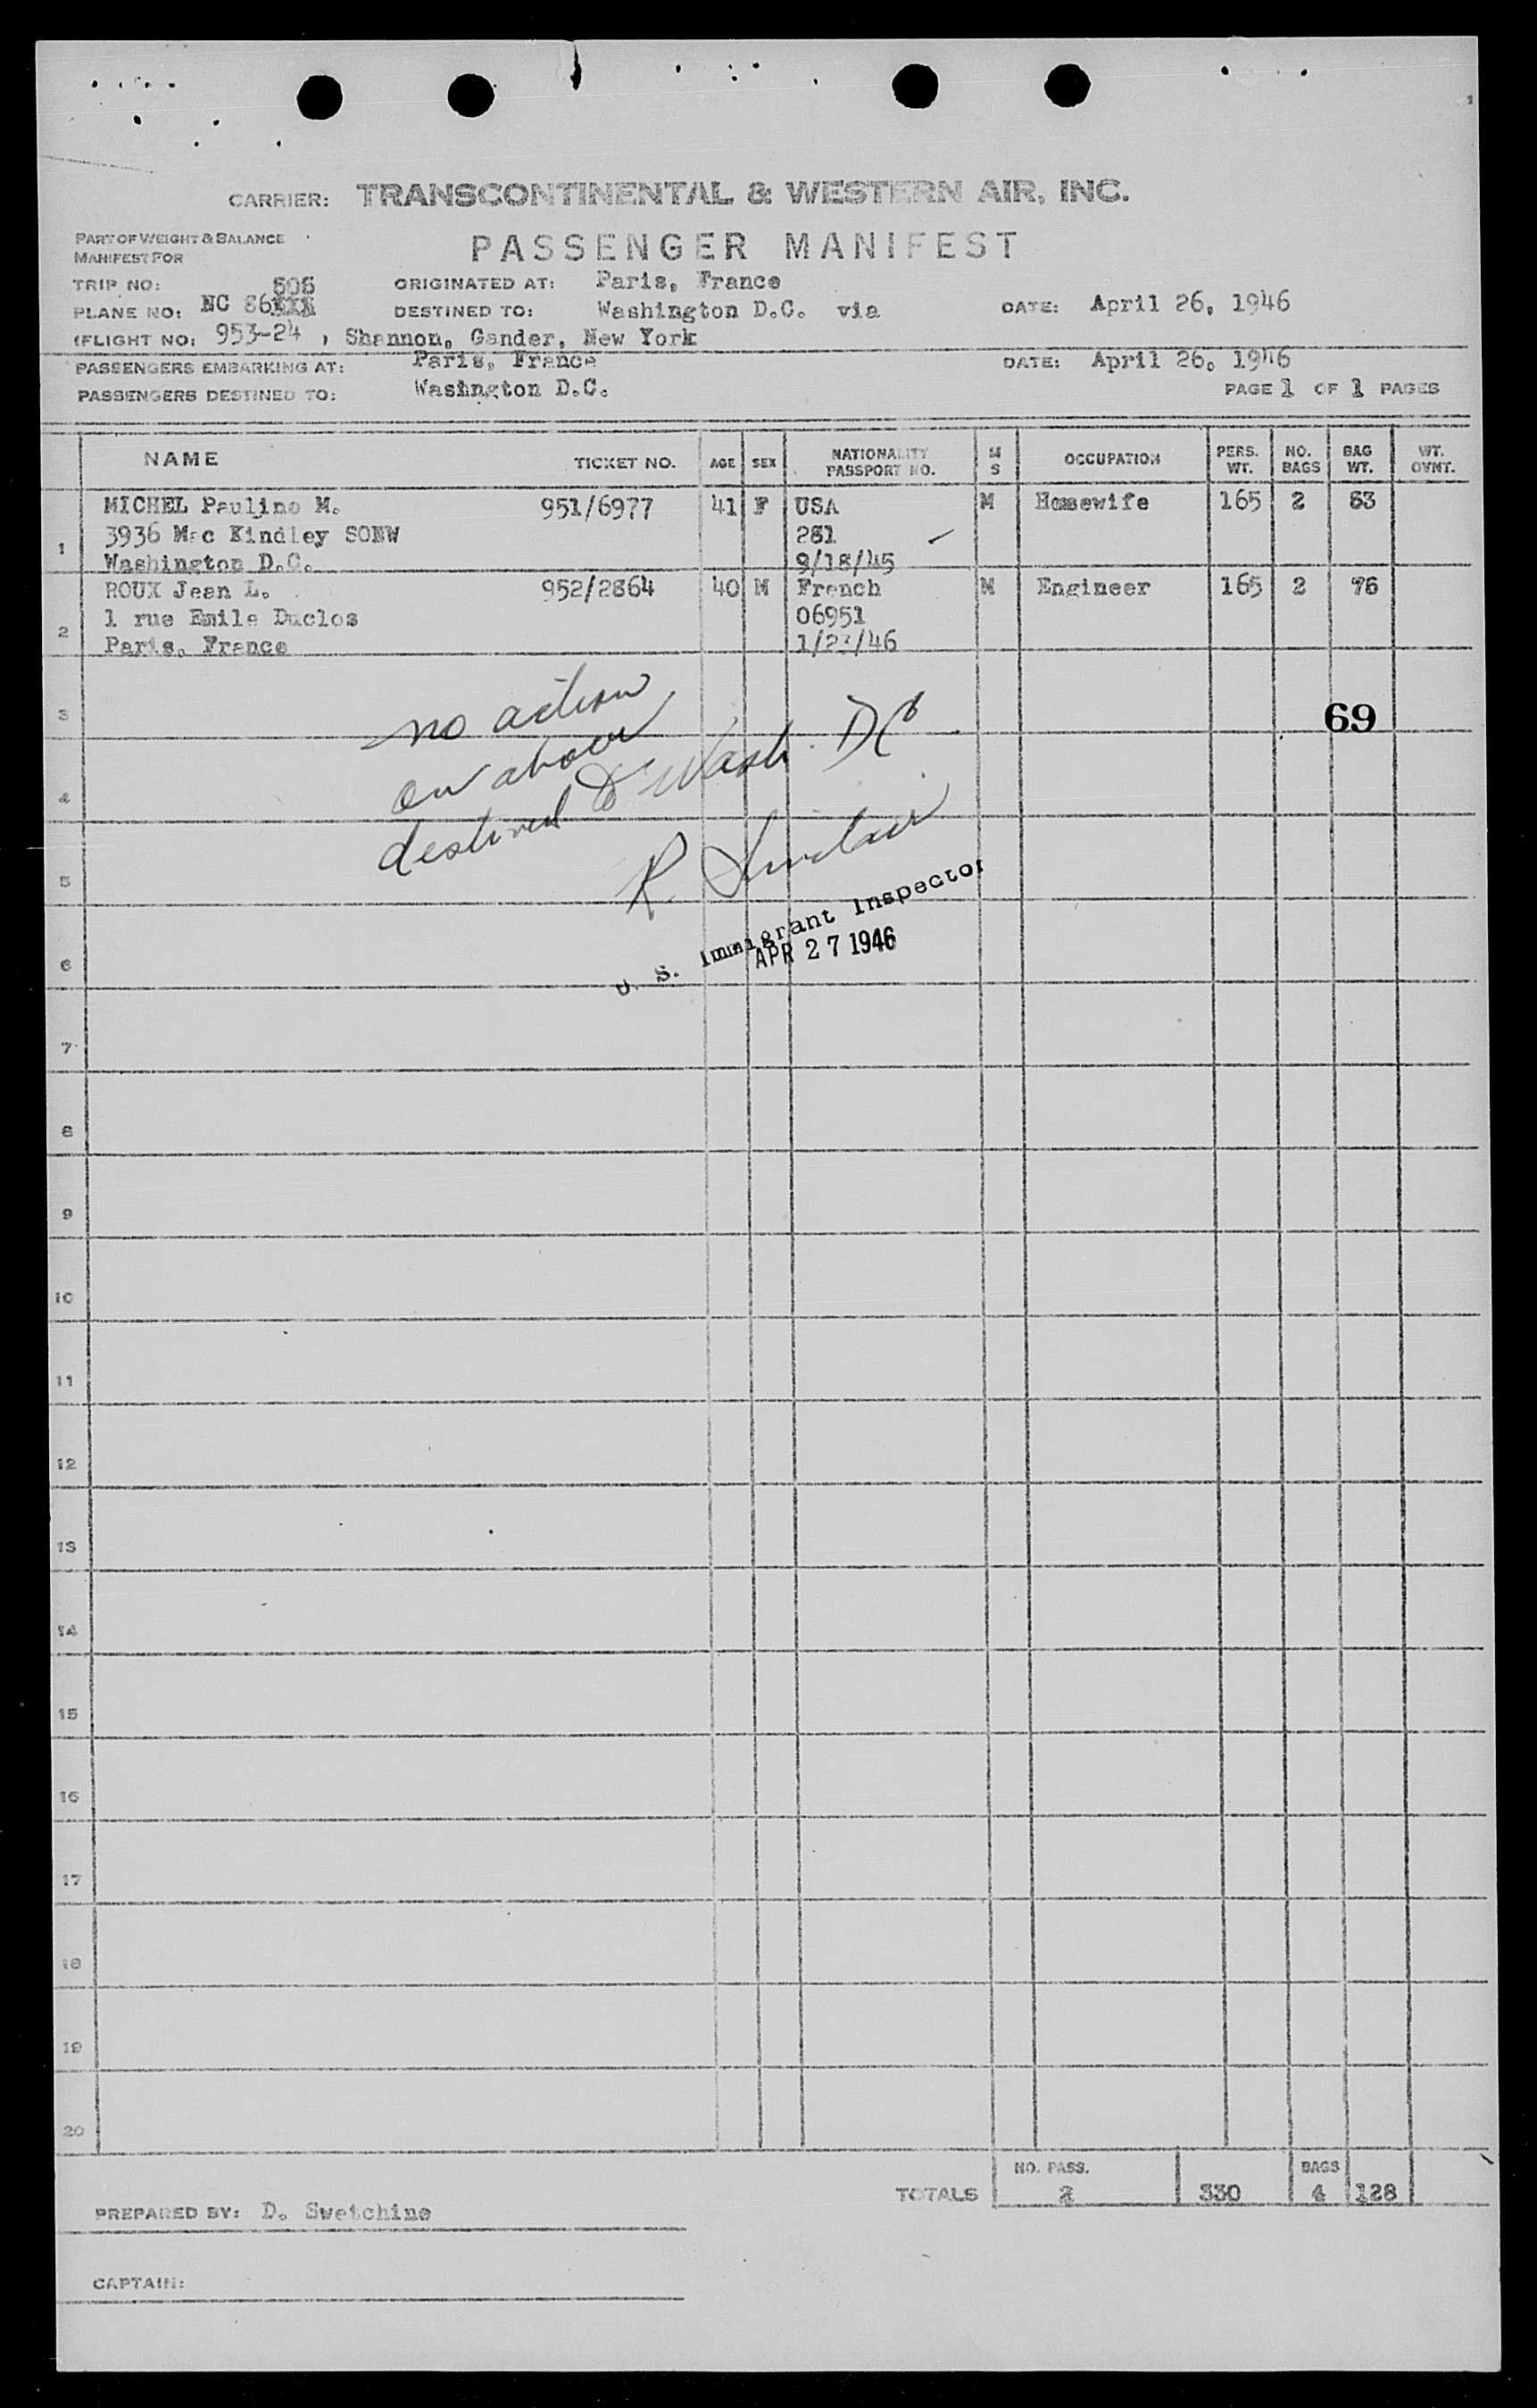 CARRIER: TRANSCONTINENTAL & WESTERN AIR, INC.
PART OF WEIGHT & BALANCE
MANIFEST FOR
PASSENGER MANIFEST
TRIP NO:
ORIGINATED AT: Paris, France
PLANE NO: NC 86
DESTINED TO: Washington D.C. via
DATE: April 26, 1946
(FLIGHT NO: 953-24 , Shannon, Gander, New York
PASSENGERS EMBARKING AT: Paris, France
DATE: April 26, 1946
PASSENGERS DESTINED TO: Washington D.C.
PAGE 1 OF 1 PAGES
NAME TICKET NO. AGE SEX NATIONALITY PASSPORT NO. M S OCCUPATION PERS. WT. NO. BAGS BAG WT. WT. OVNT.
MICHEL Pauline M. 951/6977 41 F USA M Housewife 165 2
3936 Mac Kindley SONW 281
1 Washington D.C. 9/18/45
ROUX Jean L. 952/2864 40 M French M Engineer 165 2 76
1 rue Emile Duclos 06951
2 Paris, France
3
no action
69
on above
4
destined to Wash. DC
R. Sinclair
5
U. S. Immigrant Inspector
APR 27 1946
6
7
8
9
10
11
12
13
14
15
16
17
18
19
20
NO. PASS. BAGS
TOTALS 2 330 4 128
PREPARED BY: D. Swetchine
CAPTAIN: